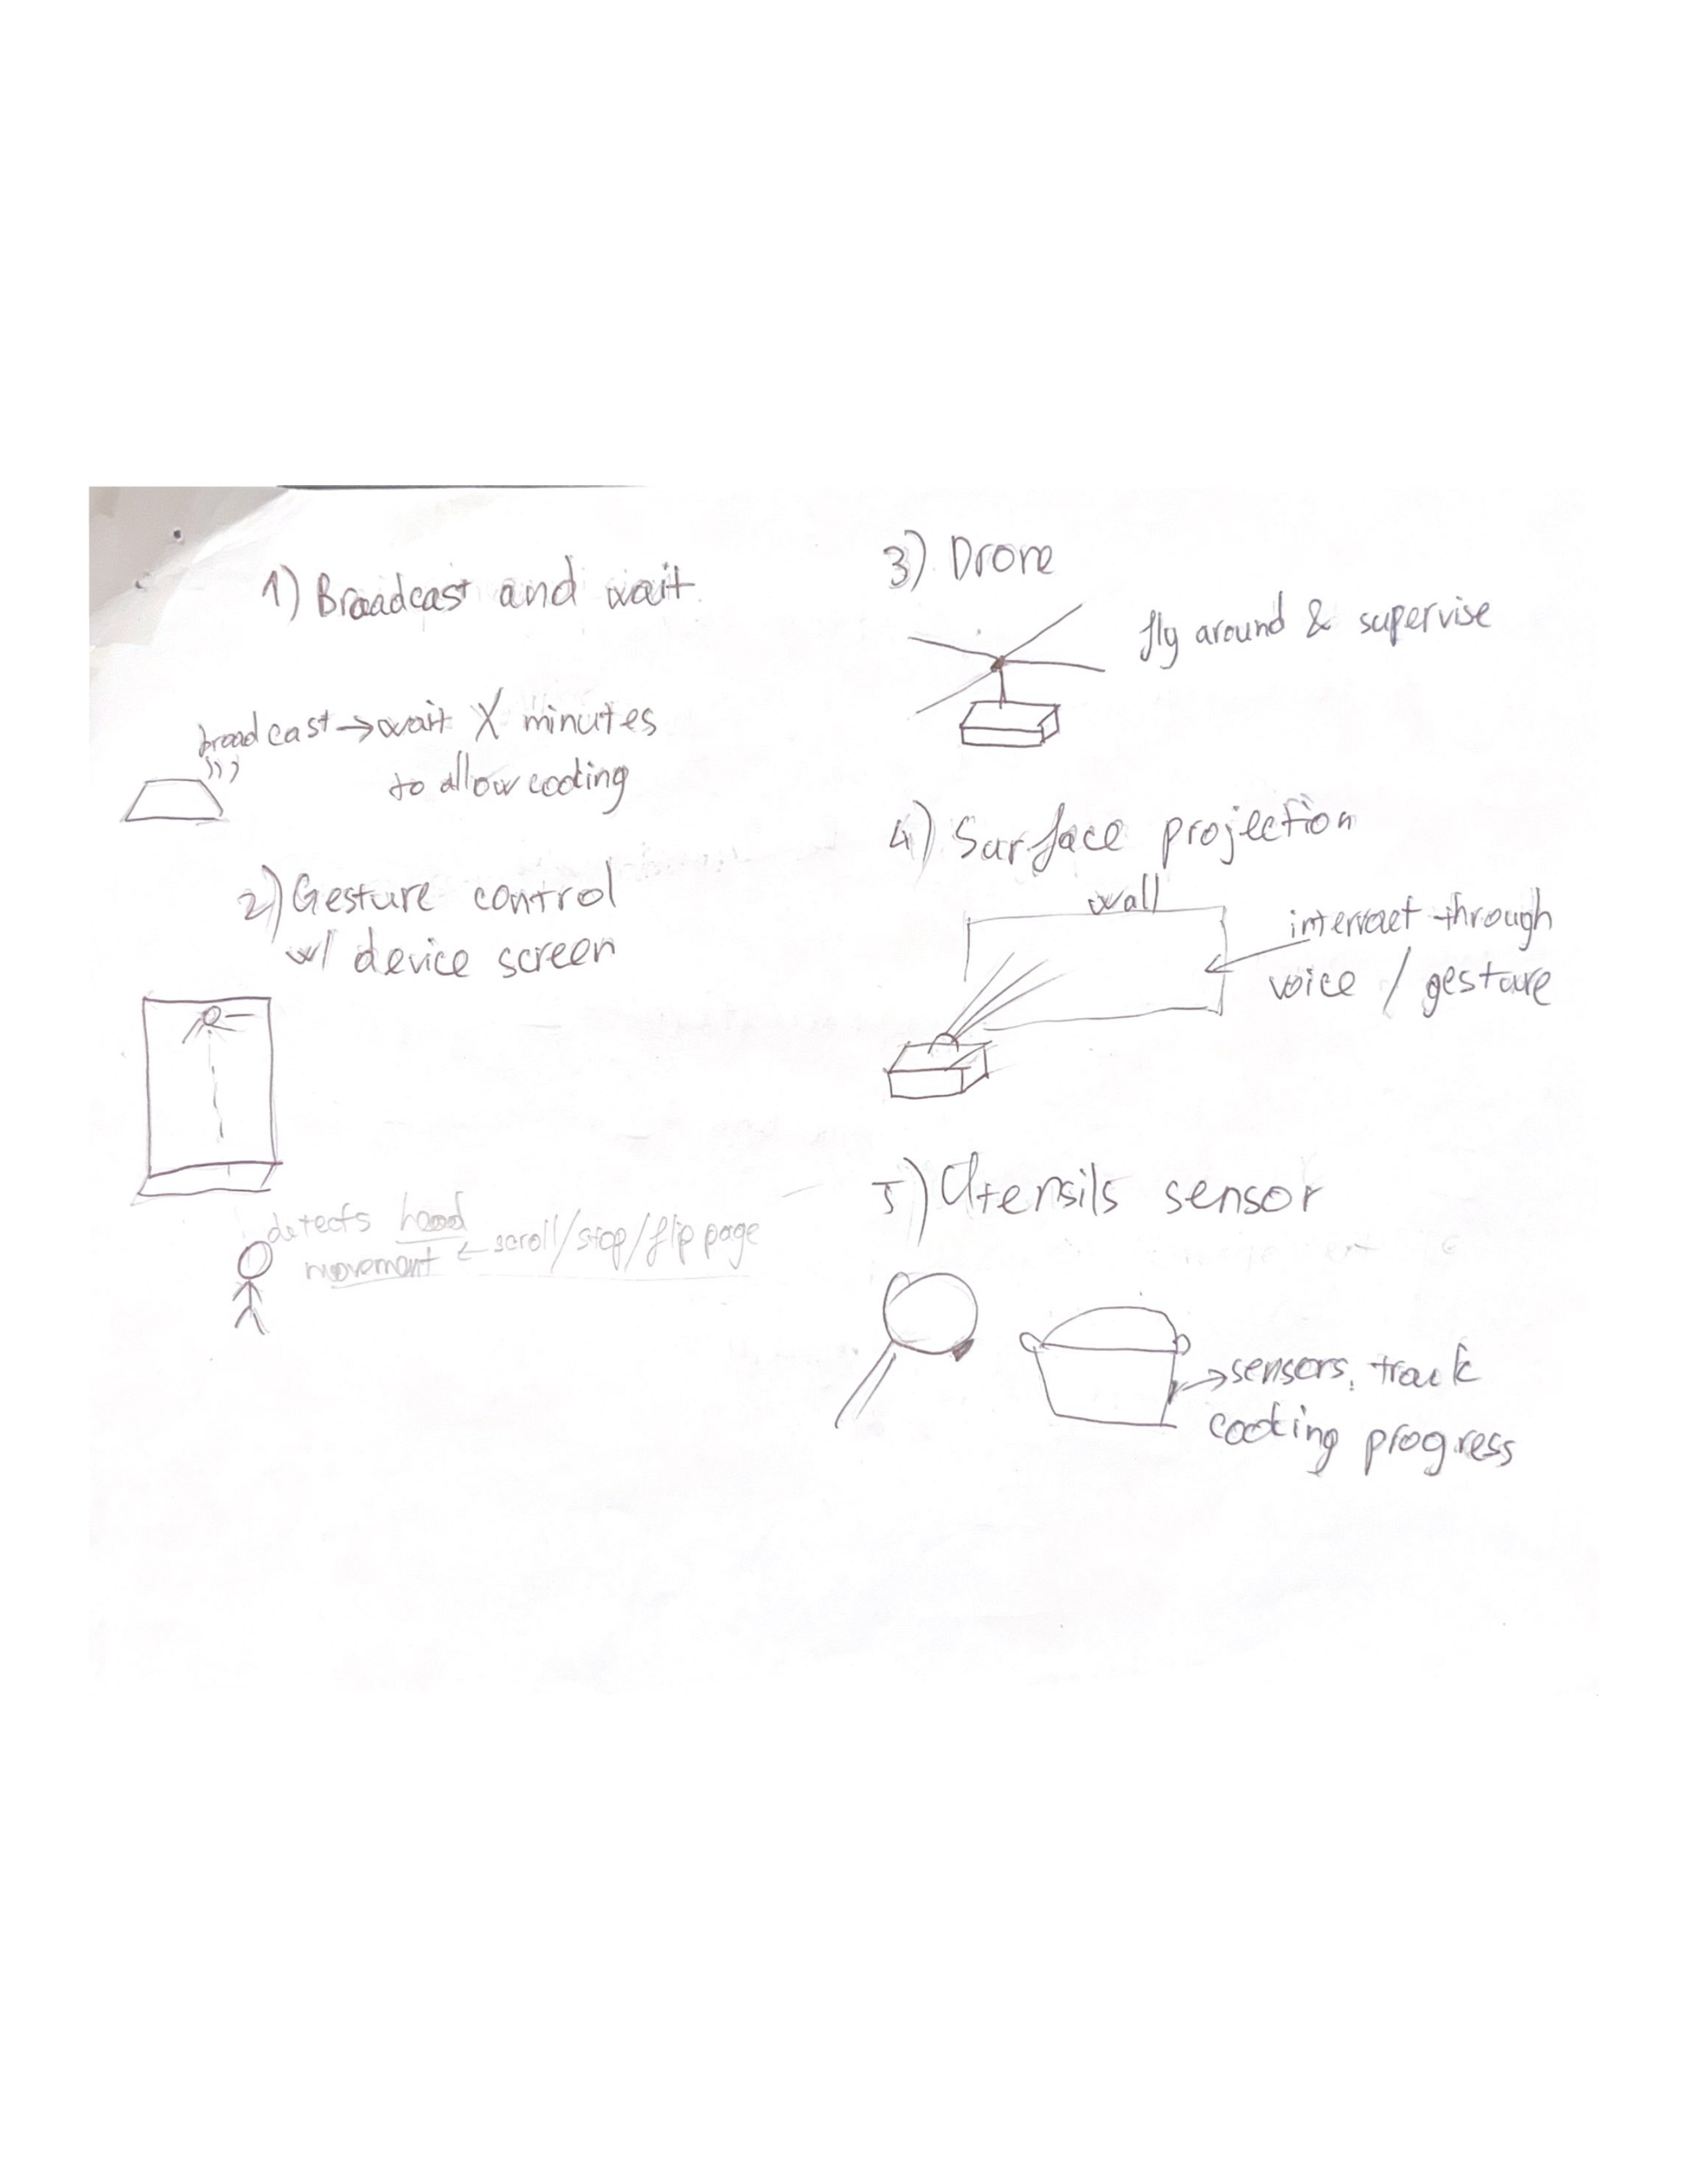 1) Broadcast and wait
broadcast → wait X minutes
to allow cooking
2) Gesture control
w/ device screen
detects hand
movement ← scroll/stop/flip page
3) Drone
fly around & supervise
4) Surface projection
wall
interact through
voice / gesture
5) Utensils sensor
→ sensors, track
cooking progress